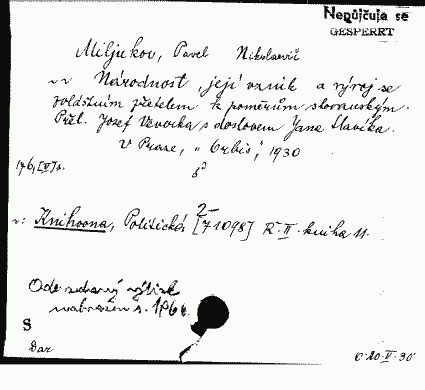 Nepůjčuje se
GESPERRT
Miljukov, Pavel Nikolaevič
Národnost, její vznik a vývoj se
zvláštním zřetelem k poměrům slovanským.
Přel. Josef Vavorka s doslovem Jana Slavíka.
V Praze, „Orbis", 1930
176, [V] s. 8°
2-
Knihovna, Politická [71098] Ř. II. kniha 11.
Odevzdaný výtisk
S
Dar
C 20-V-35